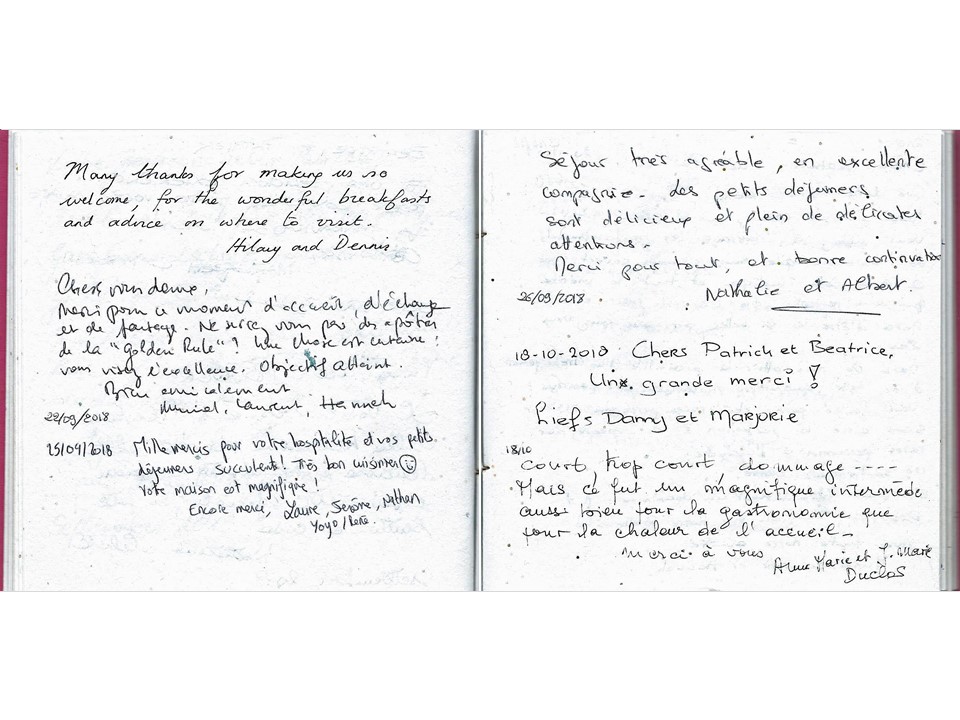 Many thanks for making us so
welcome, for the wonderful breakfasts
and advice on where to visit.
Hilary and Dennis
Chers vous deux,
Merci pour ce moment d'accueil, d'échange
et de partage. Ne seriez vous pas des apôtres
de la "golden Rule" ? Une chose est certaine :
vous visez l'excellence. Objectif atteint.
Bien amicalement
Muriel, Laurent, Hannah
22/09/2018
25/04/2018 Mille mercis pour votre hospitalité et vos petits
déjeuners succulents! Très bon cuisinier
Votre maison est magnifique !
Encore merci, Laure, Jérôme, Nathan
Yoyo /
Séjour très agréable, en excellente
compagnie. Les petits déjeuners
sont délicieux et plein de délicates
attentions.
Merci pour tout, et bonne continuation
26/09/2018 Nathalie et Albert.
18-10-2018 Chers Patrick et Beatrice,
Un grande merci !
Liefs Damy et Marjorie
18/10
Court, trop court, dommage ----
Mais ce fut un magnifique intermède
aussi bien pour la gastronomie que
pour la chaleur de l'accueil.
Merci à vous
Anne Marie et J. Marie
Duclos